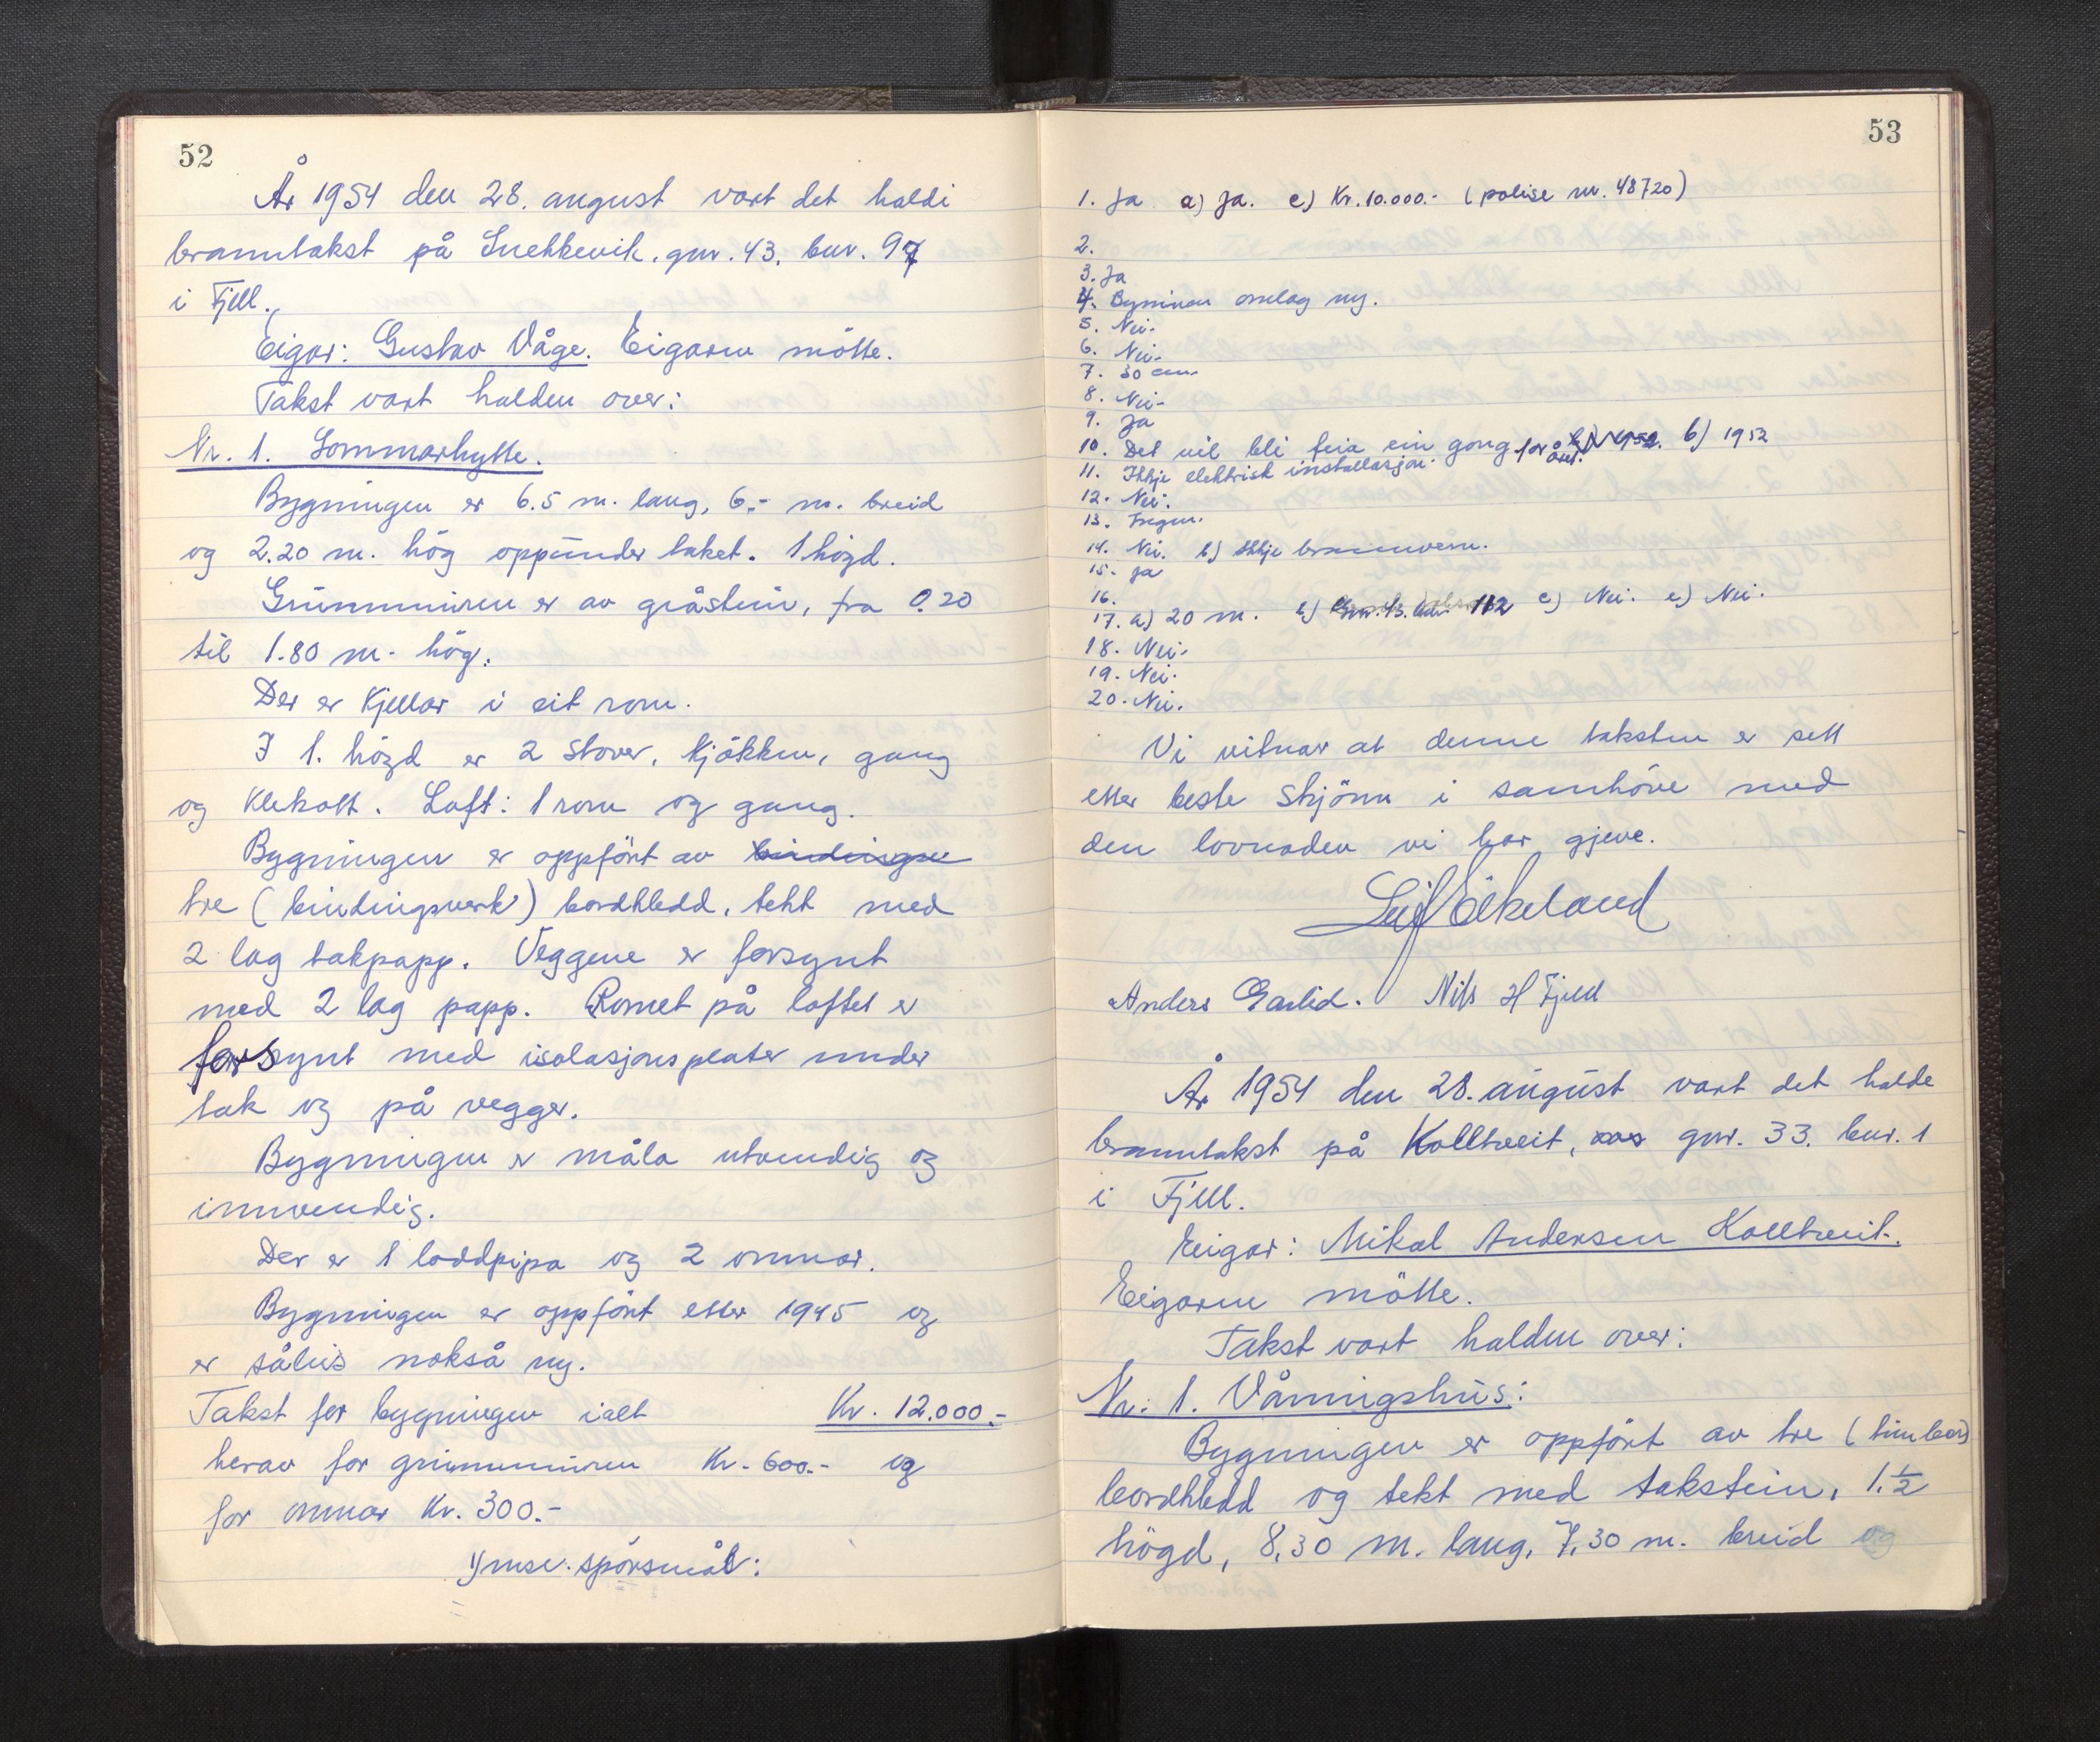 52
År 1954 den 28. august vart det haldi
branntakst på Snekkevik, gnr. 43, bnr. 97
i Fjell.
Eigar: Gustav Våge. Eigaren møtte.
Takst vart halden over:
Nr. 1. Sommarhytte.
Bygningen er 6.5 m. lang, 6.- m. breid
og 2.20 m. høg oppunder taket. 1 högd.
Grunnmuren er av gråstein, fra 0.20
til 1.80 m. høg.
Der er Kjellar i eit rom.
I 1. högd er 2 stover, kjökken, gang
og klekott. Loft: 1 rom og gang.
Bygningen er oppfört av
tre (bindingsverk) bordkledd, tekt med
2 lag takpapp. Veggene er forsynt
med 2 lag papp. Romet på loftet er
forsynt med isolasjonsplater under
tak og på vegger.
Bygningen er måla utvendig og
innvendig.
Der er 1 loddpipa og 2 omnar.
Bygningen er oppfört etter 1945 og
er såleis nokså ny.
Takst for bygningen ialt Kr. 12.000.-
herav for grunnmuren Kr. 600.- og
for omnar Kr. 300.-
Ymse spörsmål:
53
1. Ja a) Ja. c) Kr. 10.000.- (polise nr. 48720)
2.
3. Ja
4. Bygninen omlag ny.
5. Nei.
6. Nei.
7. 30 cm.
8. Nei.
9. Ja
10. Det vil bli feia ein gong for året. b) 1952
11. Ikkje elektrisk installasjon.
12. Nei.
13. Ingen.
14. Nei. b) Ikkje brannvern.
15. Ja
16.
17. a) 20 m. b) Gnr. 43. bnr. 112 c) Nei. e) Nei.
18. Nei.
19. Nei.
20. Nei.
Vi vitnar at denne taksten er sett
etter beste skjönn i samhöve med
den lovnaden vi har gjeve.
Leif Eikeland
Anders Garlid. Nils H Fjell
År 1954 den 28. august vart det halde
branntakst på Kolltveit, gnr. 33. bnr. 1
i Fjell.
Eigar: Mikal Andersen Kolltveit.
Eigaren mötte.
Takst vart halden over:
Nr. 1. Våningshus:
Bygningen er oppfört av tre (timber)
bordkledd og tekt med takstein, 1.½
högd, 8.30 m. lang, 7.30 m. breid og